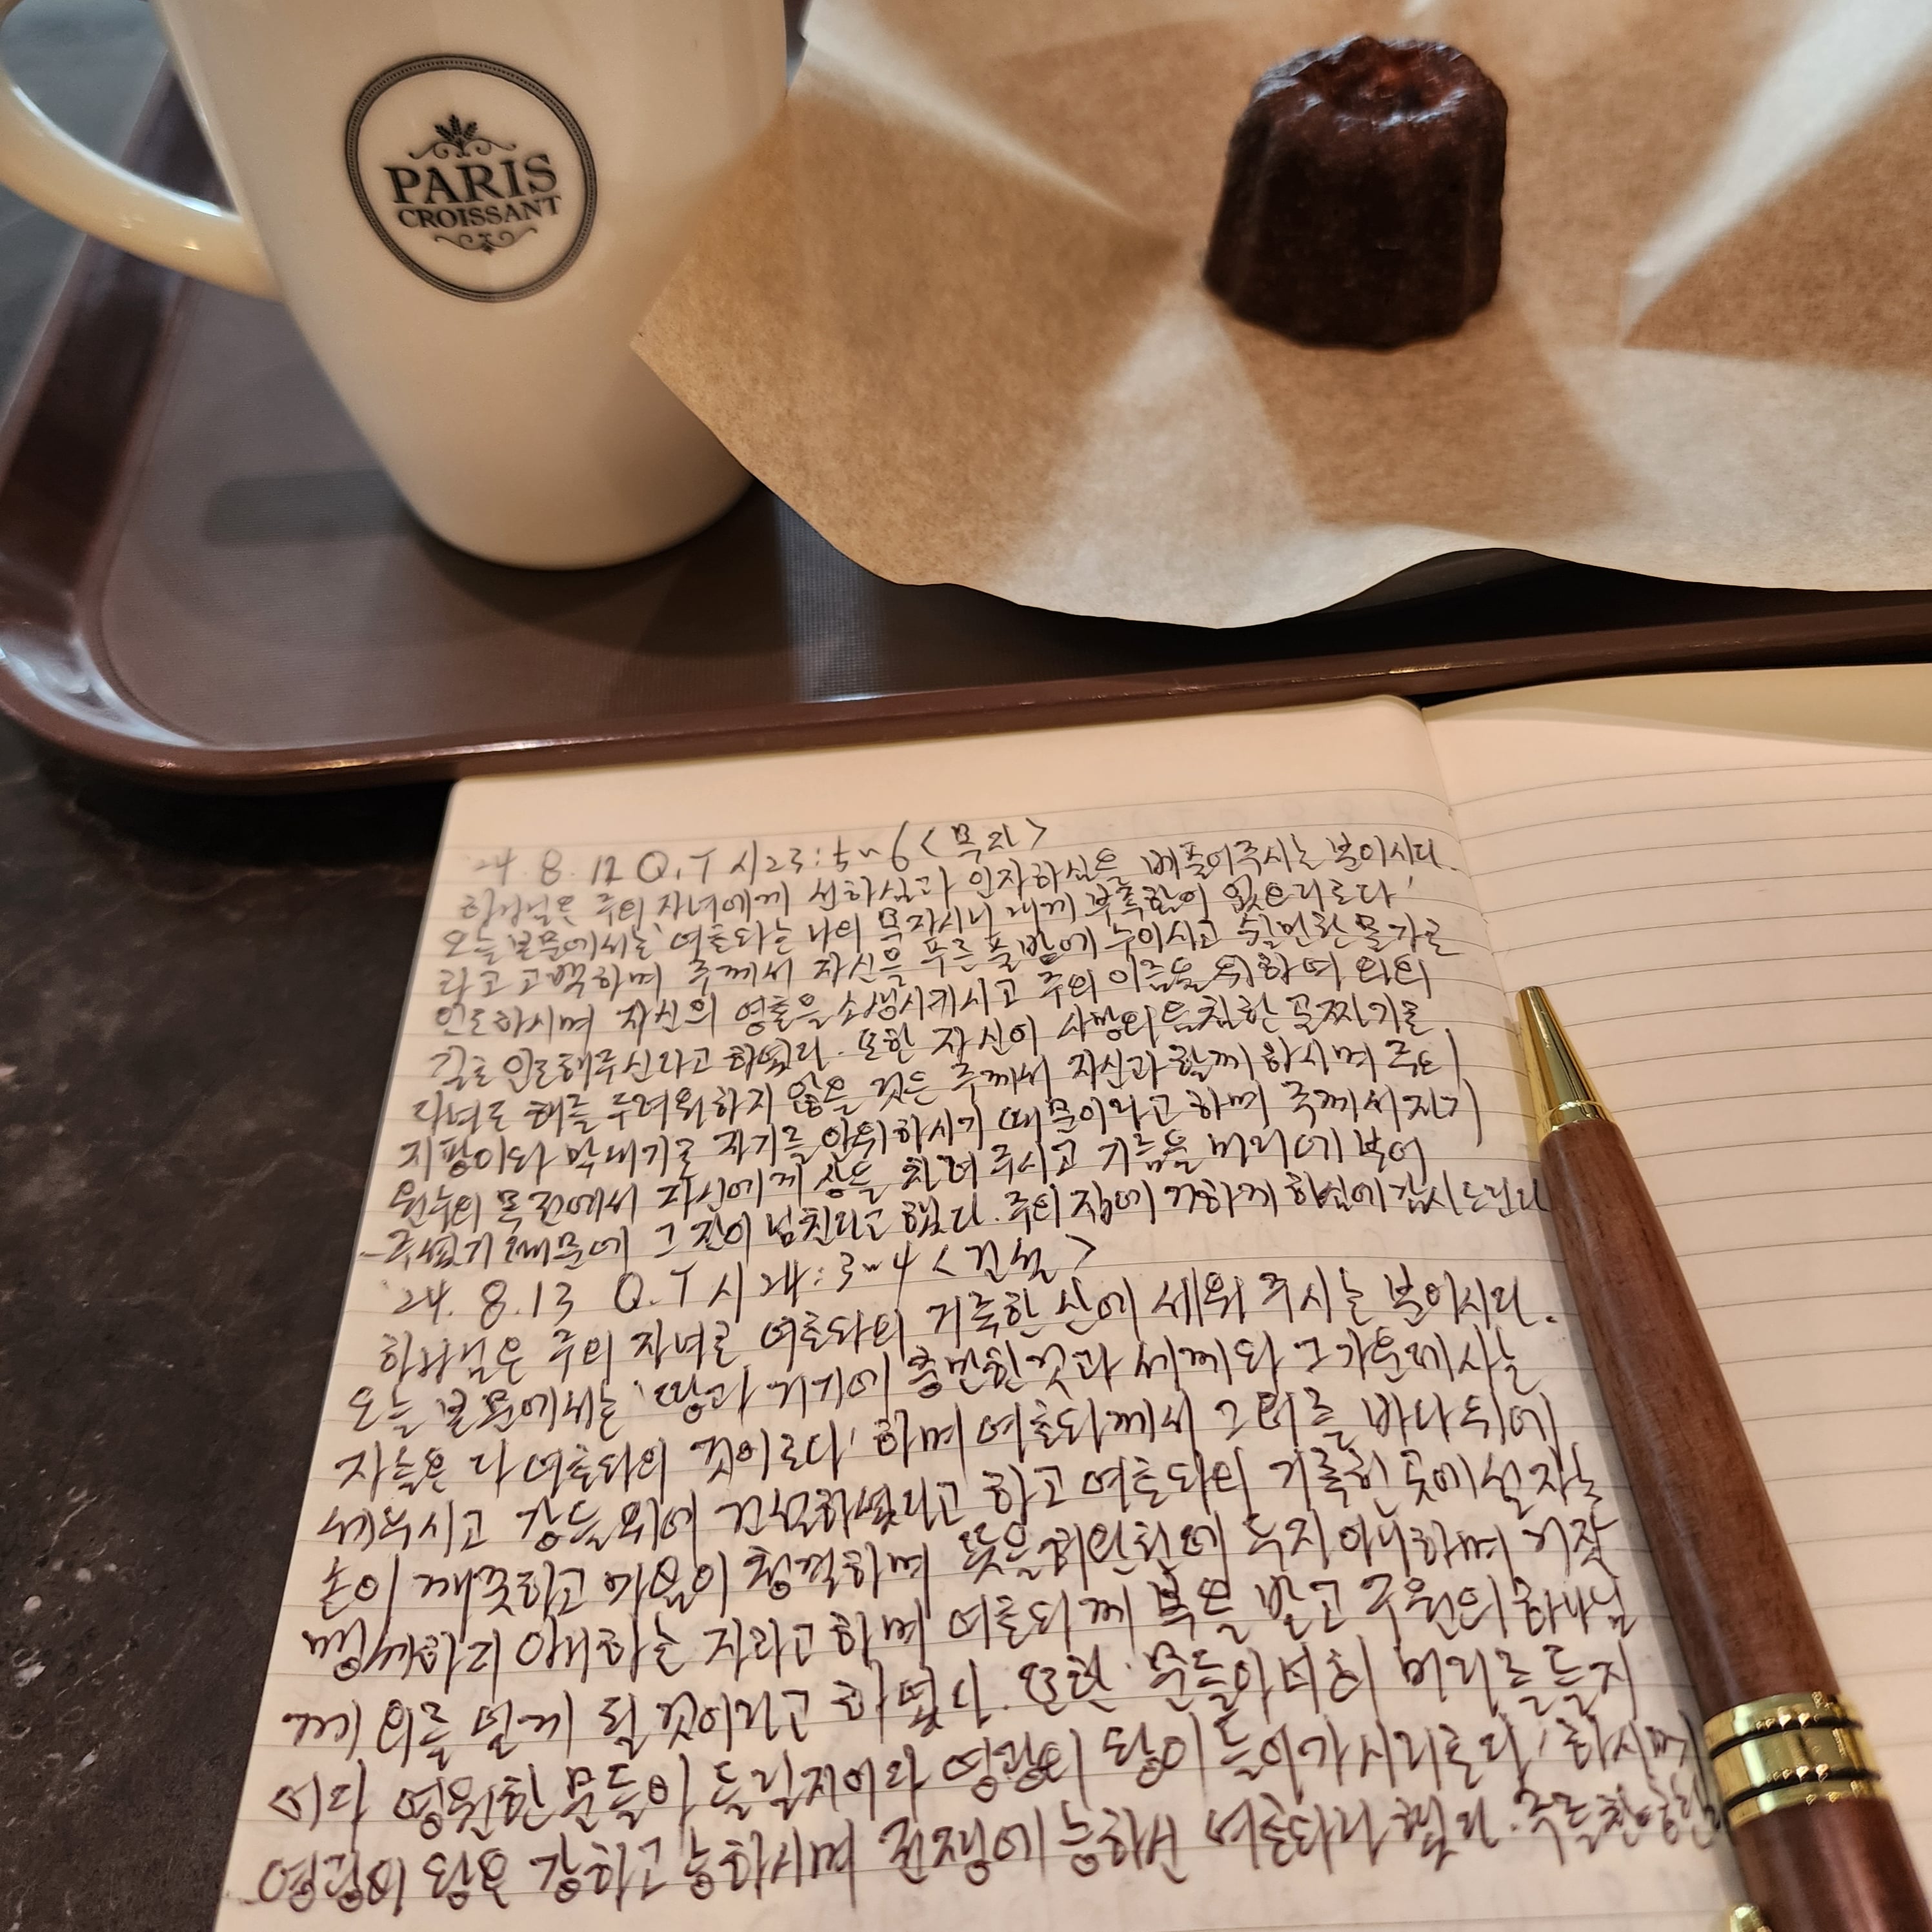 PARIS
CROISSANT
'24. 8. 12 Q.T 시23:5~6 <목자>
하나님은 주의 자녀에게 선하심과 인자하심을 베풀어주시는 분이시다.
오늘 본문에서는 '여호와는 나의 목자시니 내게 부족함이 없으리로다'
라고 고백하며 주께서 자신을 푸른 풀밭에 누이시고 쉴만한 물가로
인도하시며 자신의 영혼을 소생시키시고 주의 이름을 위하여 의의
길로 인도해주신다고 하였다. 또한 자신이 사망의 음침한 골짜기로
다녀도 해를 두려워하지 않을 것은 주께서 자신과 함께 하시며 주의
지팡이와 막대기로 자기를 안위하시기 때문이라고 하며 주께서 자기
원수의 목전에서 자신에게 상을 차려 주시고 기름을 머리에 부어
주셨기 때문에 그 잔이 넘친다고 했다. 주의 집에 거하게 하심에 감사드린다
'24. 8. 13 Q.T 시24:3~4 <건설>
하나님은 주의 자녀를 여호와의 거룩한 산에 세워 주시는 분이시다.
오늘 본문에서는 '땅과 거기에 충만한 것과 세계와 그 가운데 사는
자들은 다 여호와의 것이로다' 하며 여호와께서 그 터를 바다 위에
세우시고 강들 위에 건설하셨다고 하고 여호와의 거룩한 곳에 설 자는
손이 깨끗하고 마음이 청결하며 뜻을 허탄한데 두지 아니하며 거짓
맹세하지 아니하는 자라고 하며 여호와께 복을 받고 구원의 하나님
께 의를 얻게 될 것이라고 하였다. 또한 '문들아 너희 머리를 들지
어다 영원한 문들아 들릴지어다 영광의 왕이 들어가시리로다' 하시며
영광의 왕은 강하고 능하시며 전쟁에 능하신 여호와라 했다. 주를 찬양한다